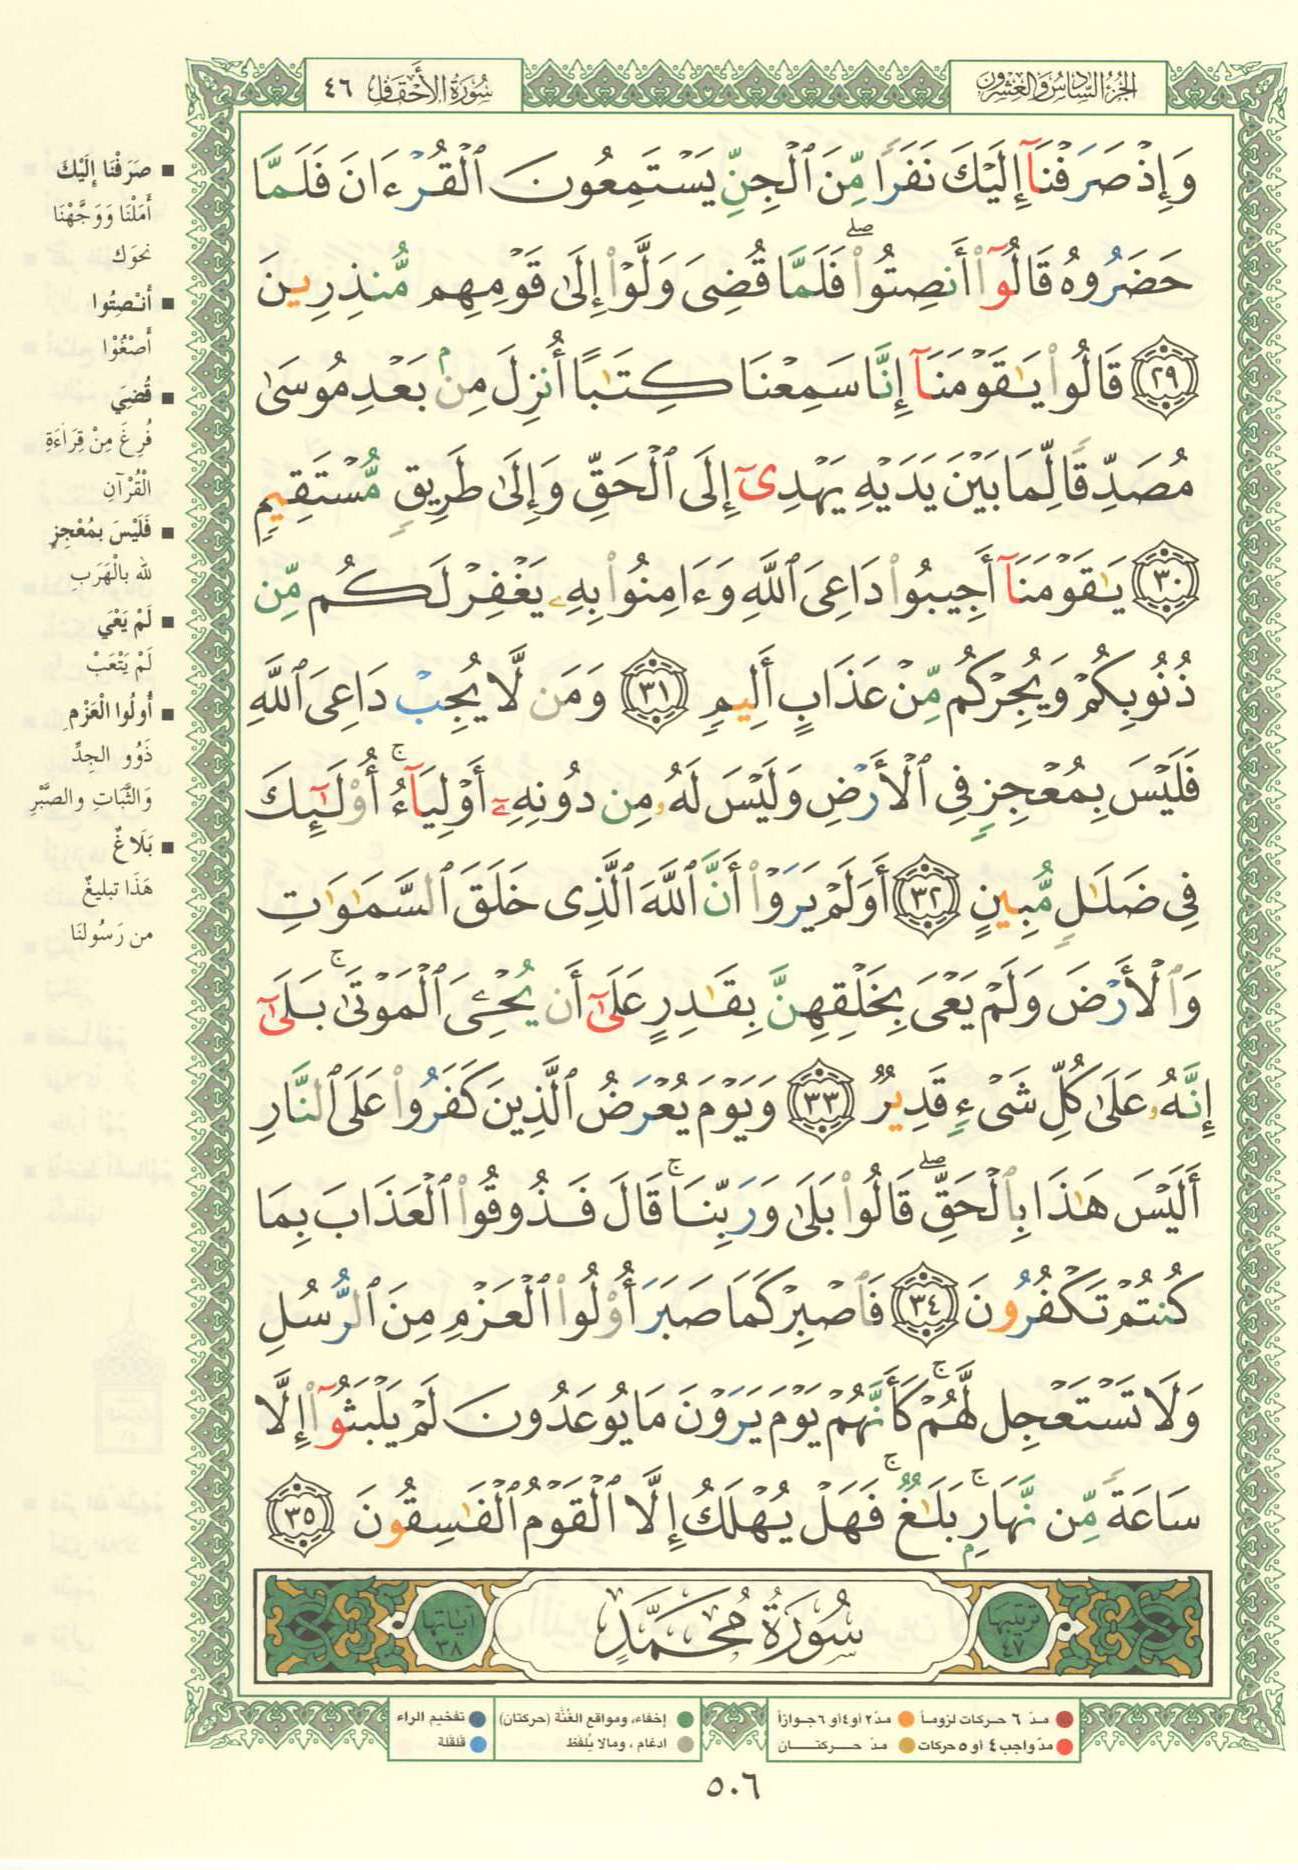 الجزء السادس والعشرون
سورة الأحقاف ٤٦
وَإِذْ صَرَفْنَآ إِلَيْكَ نَفَرًا مِّنَ ٱلْجِنِّ يَسْتَمِعُونَ ٱلْقُرْءَانَ فَلَمَّا
حَضَرُوهُ قَالُوٓا۟ أَنصِتُوا۟ ۖ فَلَمَّا قُضِىَ وَلَّوْا۟ إِلَىٰ قَوْمِهِم مُّنذِرِينَ
٢٩ قَالُوا۟ يَـٰقَوْمَنَآ إِنَّا سَمِعْنَا كِتَـٰبًا أُنزِلَ مِنۢ بَعْدِ مُوسَىٰ
مُصَدِّقًا لِّمَا بَيْنَ يَدَيْهِ يَهْدِىٓ إِلَى ٱلْحَقِّ وَإِلَىٰ طَرِيقٍ مُّسْتَقِيمٍ
٣٠ يَـٰقَوْمَنَآ أَجِيبُوا۟ دَاعِىَ ٱللَّهِ وَءَامِنُوا۟ بِهِۦ يَغْفِرْ لَكُم مِّن
ذُنُوبِكُمْ وَيُجِرْكُم مِّنْ عَذَابٍ أَلِيمٍ ٣١ وَمَن لَّا يُجِبْ دَاعِىَ ٱللَّهِ
فَلَيْسَ بِمُعْجِزٍ فِى ٱلْأَرْضِ وَلَيْسَ لَهُۥ مِن دُونِهِۦٓ أَوْلِيَآءُ ۚ أُو۟لَـٰٓئِكَ
فِى ضَلَـٰلٍ مُّبِينٍ ٣٢ أَوَلَمْ يَرَوْا۟ أَنَّ ٱللَّهَ ٱلَّذِى خَلَقَ ٱلسَّمَـٰوَٰتِ
وَٱلْأَرْضَ وَلَمْ يَعْىَ بِخَلْقِهِنَّ بِقَـٰدِرٍ عَلَىٰٓ أَن يُحْـِۧىَ ٱلْمَوْتَىٰ ۚ بَلَىٰٓ
إِنَّهُۥ عَلَىٰ كُلِّ شَىْءٍ قَدِيرٌ ٣٣ وَيَوْمَ يُعْرَضُ ٱلَّذِينَ كَفَرُوا۟ عَلَى ٱلنَّارِ
أَلَيْسَ هَـٰذَا بِٱلْحَقِّ ۖ قَالُوا۟ بَلَىٰ وَرَبِّنَا ۚ قَالَ فَذُوقُوا۟ ٱلْعَذَابَ بِمَا
كُنتُمْ تَكْفُرُونَ ٣٤ فَٱصْبِرْ كَمَا صَبَرَ أُو۟لُوا۟ ٱلْعَزْمِ مِنَ ٱلرُّسُلِ
وَلَا تَسْتَعْجِل لَّهُمْ ۚ كَأَنَّهُمْ يَوْمَ يَرَوْنَ مَا يُوعَدُونَ لَمْ يَلْبَثُوٓا۟ إِلَّا
سَاعَةً مِّن نَّهَارٍۭ ۚ بَلَـٰغٌ ۚ فَهَلْ يُهْلَكُ إِلَّا ٱلْقَوْمُ ٱلْفَـٰسِقُونَ ٣٥
ترتيبها ٤٧
سُورَةُ مُحَمَّدٍ
آياتها ٣٨
■ صَرَفْنَا إِلَيْكَ
أَمَلْنَا وَوَجَّهْنَا
نحوَك
■ أَنْصِتُوا
أَصْغُوْا
■ قُضِيَ
فُرِغَ مِنْ قِرَاءَةِ
الْقُرْآنِ
■ فَلَيْسَ بمُعْجِزٍ
لله بالْهَرَب
■ لَمْ يَعْيَ
لَمْ يَتْعَبْ
■ أُولُوا الْعَزْمِ
ذَوُو الجِدِّ
وَالثَّبَاتِ والصَّبْرِ
■ بَلَاغٌ
هَذَا تبليغٌ
من رَسُولنَا
مدّ ٦ حركات لزوماً
مدّ ٢ أو ٤ أو ٦ جوازاً
مدّ واجب ٤ أو ٥ حركات
مدّ حركتـــان
إخفاء، ومواقع الغُنَّة (حركتان)
ادغام ، ومالا يُلفظ
تفخيم الراء
قلقلة
٥٠٦